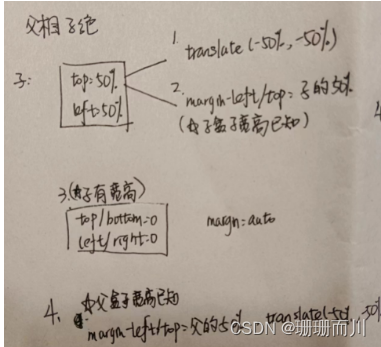 父相子绝
1. translate(-50%,-50%)
子:
top=50%
left=50%
2. margin-left/top= 子的50%
(子盒子宽高已知)
3.(子有宽高)
top/bottom=0
left/right=0
margin=auto
4. 父盒子宽高已知
margin-left/top=父的50% translate(-50%, -50%
CSDN @珊珊而川